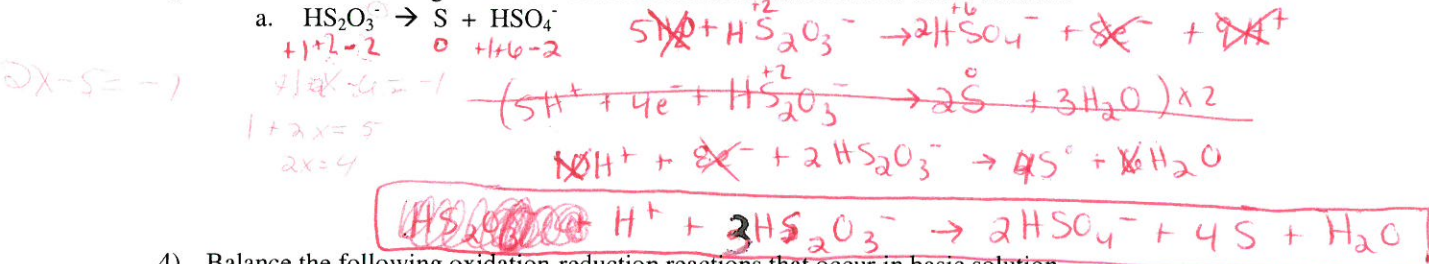 a. HS₂O₃⁻ → S + HSO₄⁻
+1+2-2 0 +1+6-2
5H₂O + HS₂O₃⁻ → 2HSO₄⁻ + 8e⁻ + 9H⁺
+2 +6
2x-5=-1
1+2x=5
2x=4
(5H⁺ + 4e⁻ + HS₂O₃⁻ → 2S + 3H₂O) x2
+2 0
10H⁺ + 8e⁻ + 2HS₂O₃⁻ → 4S⁰ + 6H₂O
H⁺ + 3HS₂O₃⁻ → 2HSO₄⁻ + 4S + H₂O
4) Balance the following oxidation reduction reactions that occur in basic solution